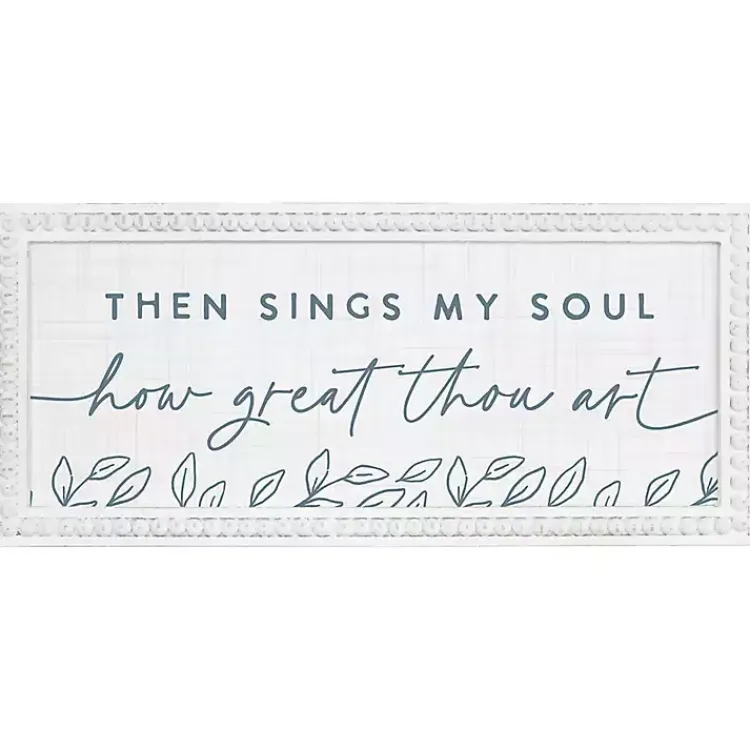 THEN SINGS MY SOUL
how great thou art